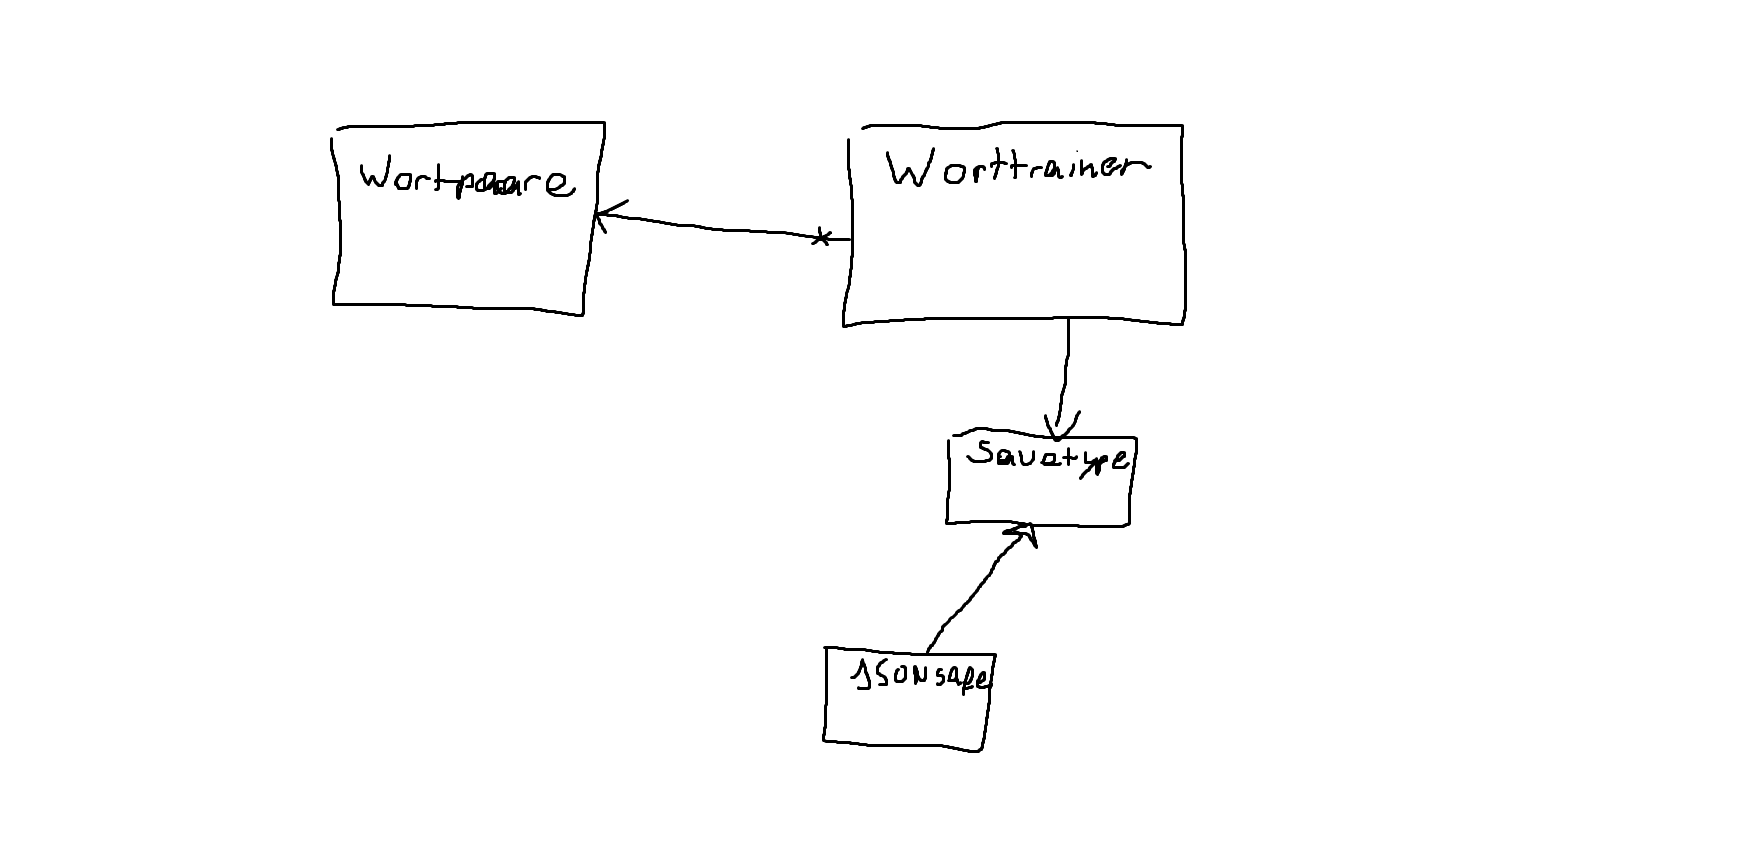 Wortpaare
Worttrainer
Savetype
JSONsafe